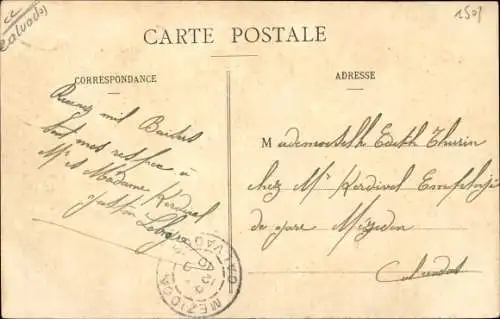 (Calvados)
1507
CARTE POSTALE
CORRESPONDANCE
ADRESSE
Recevez mil Baisers
tout mes respec à
Mr et Madame Kerdivel
Mademoiselle Edith Thurin
chez Mr Kerdivel Employé
de gare Mézidon
Calvados
MEZIDON
CALVADOS